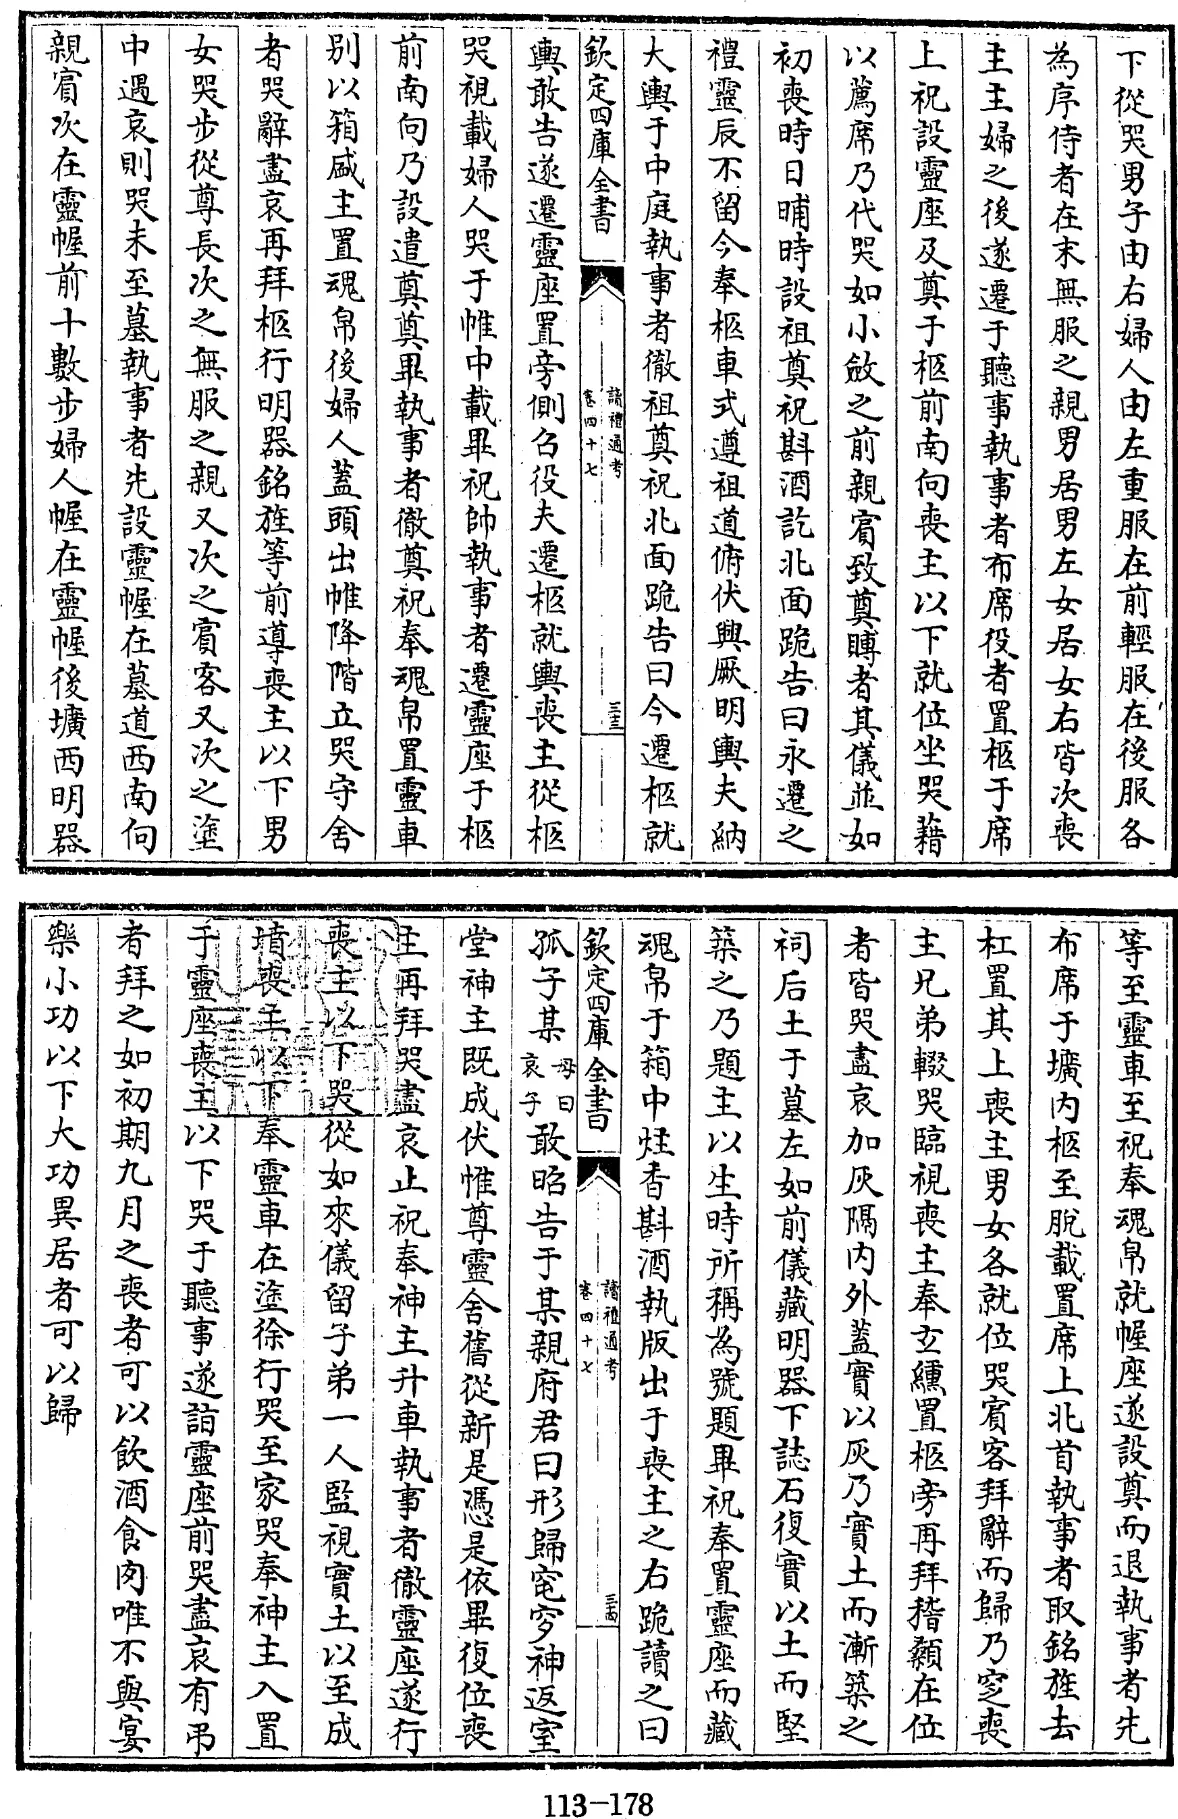 下從哭男子由右婦人由左重服在前輕服在後服各
為序侍者在末無服之親男居男左女居女右皆次喪
主主婦之後遂遷于聽事執事者布席役者置柩于席
上祝設靈座及奠于柩前南向喪主以下就位坐哭藉
以薦席乃代哭如小斂之前親賓致奠賻者其儀並如
初喪時日晡時設祖奠祝斟酒訖北面跪告曰永遷之
禮靈辰不留今奉柩車式遵祖道俯伏興厥明輿夫納
大輿于中庭執事者徹祖奠祝北面跪告曰今遷柩就
欽定四庫全書
讀禮通考
卷四十七
三三
輿敢告遂遷靈座置旁側召役夫遷柩就輿喪主從柩
哭視載婦人哭于帷中載畢祝帥執事者遷靈座于柩
前南向乃設遣奠奠畢執事者徹奠祝奉魂帛置靈車
別以箱盛主置魂帛後婦人蓋頭出帷降階立哭守舍
者哭辭盡哀再拜柩行明器銘旌等前導喪主以下男
女哭步從尊長次之無服之親又次之賓客又次之塗
中遇哀則哭未至墓執事者先設靈幄在墓道西南向
親賓次在靈幄前十數步婦人幄在靈幄後壙西明器
等至靈車至祝奉魂帛就幄座遂設奠而退執事者先
布席于壙內柩至脫載置席上北首執事者取銘旌去
杠置其上喪主男女各就位哭賓客拜辭而歸乃窆喪
主兄弟輟哭臨視喪主奉玄纁置柩旁再拜稽顙在位
者皆哭盡哀加灰隔內外蓋實以灰乃實土而漸築之
祠后土于墓左如前儀藏明器下誌石復實以土而堅
築之乃題主以生時所稱為號題畢祝奉置靈座而藏
魂帛于箱中炷香斟酒執版出于喪主之右跪讀之曰
欽定四庫全書
讀禮通考
卷四十七
三四
孤子某母曰哀子敢昭告于某親府君曰形歸窀穸神返室
堂神主既成伏惟尊靈舍舊從新是憑是依畢復位喪
主再拜哭盡哀止祝奉神主升車執事者徹靈座遂行
喪主以下哭從如來儀留子弟一人監視實土以至成
墳喪主以下奉靈車在塗徐行哭至家哭奉神主入置
于靈座喪主以下哭于聽事遂詣靈座前哭盡哀有弔
者拜之如初期九月之喪者可以飲酒食肉唯不與宴
樂小功以下大功異居者可以歸
113-178